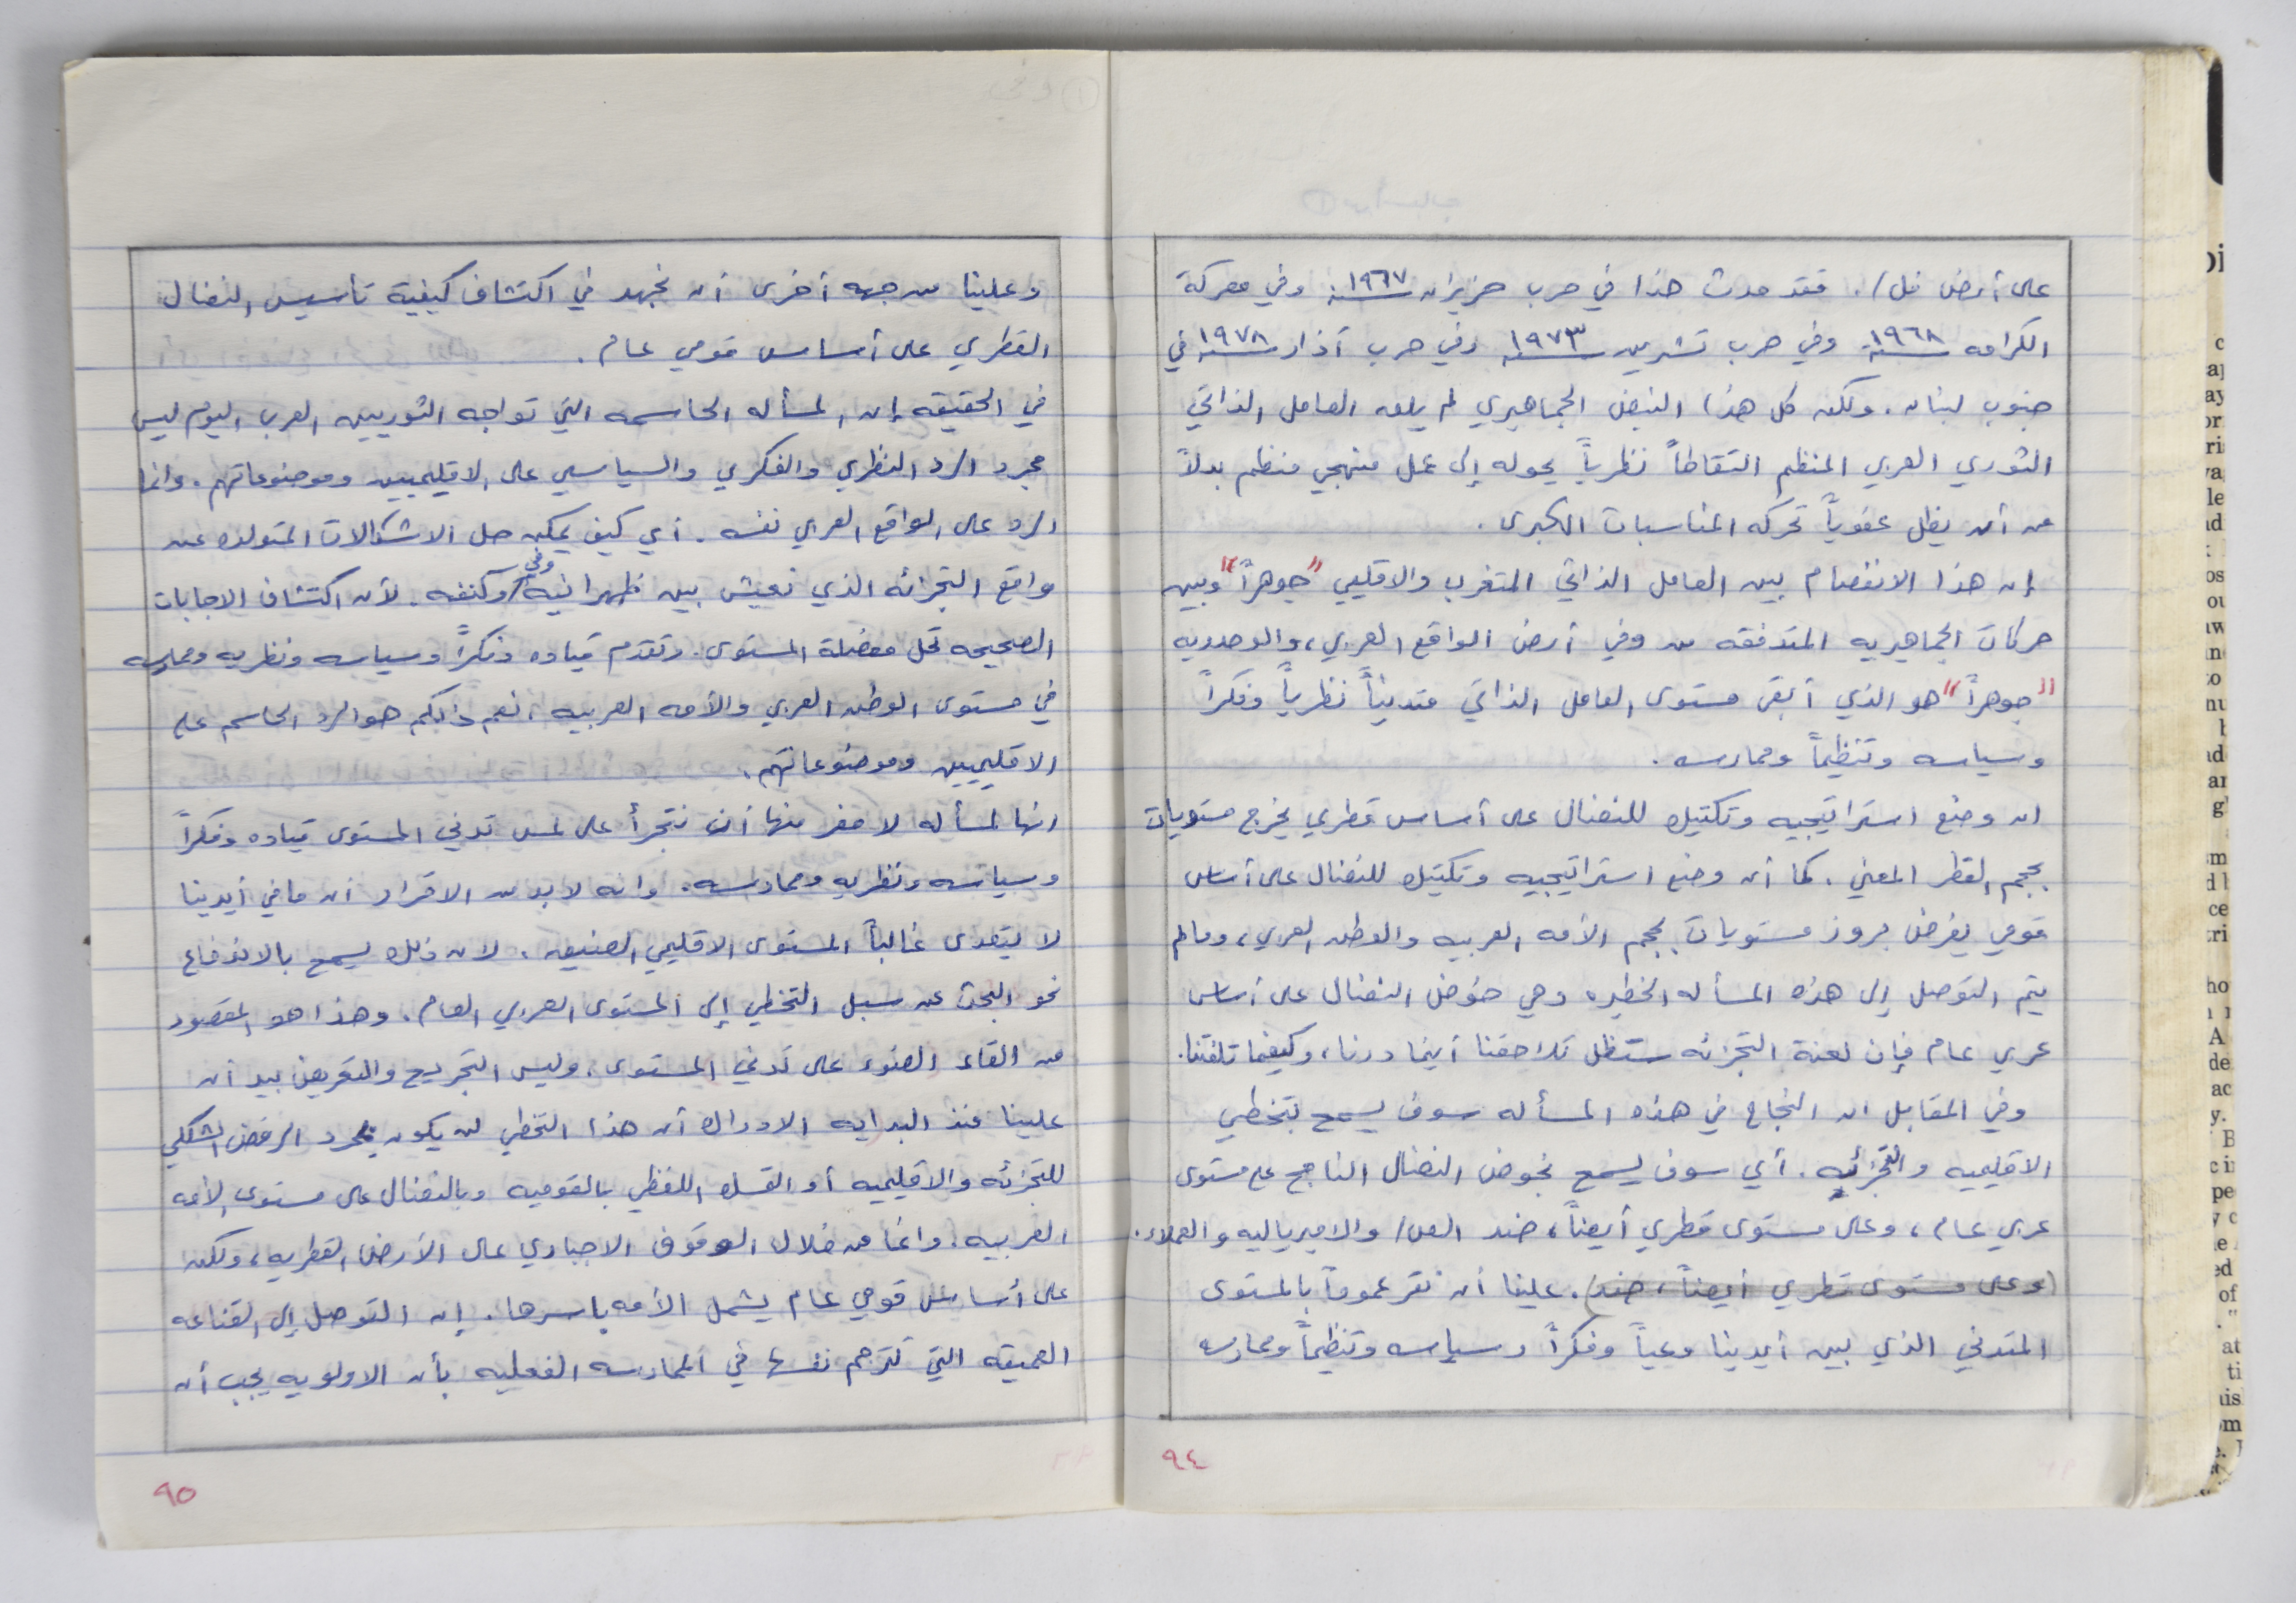 على أرض فل/. فقد حدث هذا في حرب حزيران سنة ١٩٦٧ وفي معركة
الكرامه سنة ١٩٦٨ وفي حرب تشرين سنة ١٩٧٣ وفي حرب آذار سنة ١٩٧٨ في
جنوب لبنان. ولكن كل هذا النبض الجماهيري لم يلقه العامل الذاتي
الثوري العربي المنظم التقاطاً نظرياً يحوله إلى عمل منهجي منظم بدلاً
من أن يظل عفوياً تحركه المناسبات الكبرى.
إن هذا الانفصام بين العامل الذاتي المتغرب والاقليمي "جوهراً" وبين
حركات الجماهيريه المتدفقه من وفي أرض الواقع العربي، والوحدويه
"جوهراً" هو الذي أبقى مستوى العامل الذاتي متدنياً نظرياً وفكراً
وسياسه وتنظيماً وممارسه.
ان وضع استراتيجيه وتكتيك للنضال على أساس قطري يخرج مستويات
بحجم القطر المعني. كما أن وضع استراتيجيه وتكتيك للنضال على أساس
قومي يفرض بروز مستويات بحجم الأمه العربيه والوطن العربي، وما لم
يتم التوصل إلى هذه المسأله الخطيره وهي خوض النضال على أساس
عربي عام فإن لعنة التجزئه ستظل تلاحقنا أينما درنا، وكيفما تلفتنا.
وفي المقابل ان النجاح في هذه المسأله سوف يسمح بتخطي
الاقليميه والتجزئيه. أي سوف يسمح بخوض النضال الناجح على مستوى
عربي عام، وعلى مستوى قطري أيضاً، ضد العل/ والامبرياليه والعملاء.
(وعلى مستوى قطري أيضاً، ضد). علينا أن نقر عموماً بالمستوى
المتدني الذي بين أيدينا وعياً وفكراً وسياسه وتنظيماً وممارسه
٩٤
وعلينا من جهه أخرى أن نجهد في اكتشاف كيفية تأسيس النضال
القطري على أساس قومي عام.
في الحقيقه إن المسأله الحاسمه التي تواجه الثوريين العرب اليوم ليس
مجرد الرد النظري والفكري والسياسي على الاقليميين وموضوعاتهم. وانما
الرد على الواقع العربي نفسه. أي كيف يمكن حل الاشكالات المتولده عن
واقع التجزئه الذي نعيش بين ظهرانيه وفي كنفه. لأن اكتشاف الاجابات
الصحيحه تحل معضلة المستوى. وتقدم قياده وفكراً وسياسه ونظريه وممارسه
في مستوى الوطن العربي والأمه العربيه، نعم ذلكم هو الرد الحاسم على
الاقليميين وموضوعاتهم.
انها لمسأله لا مفر منها أن نتجرأ على لمس تدني المستوى قياده وفكراً
وسياسه ونظريه وممارسه. وانه لا بد من الاقرار أن ما في أيدينا
لا يتعدى غالباً المستوى الاقليمي الضيق. لان ذلك يسمح بالاندفاع
نحو البحث عن سبل التخطي إلى المستوى العربي العام. وهذا هو المقصود
من القاء الضوء على تدني المستوى، وليس التجريح والتعريض بيد أن
علينا منذ البدايه الادراك أن هذا التخطي لن يكون بمجرد الرفض الشكلي
للتجزئه والاقليميه أو التمسك اللفظي بالقوميه وبالنضال على مستوى الأمه
العربيه. وانما من خلال الوقوف الاجباري على الأرض القطريه، ولكن
على أساس قومي عام يشمل الأمه بأسرها. إن التوصل إلى القناعه
العميقه التي تترجم نفسها في الممارسه الفعليه بأن الاولويه يجب أن
٩٥